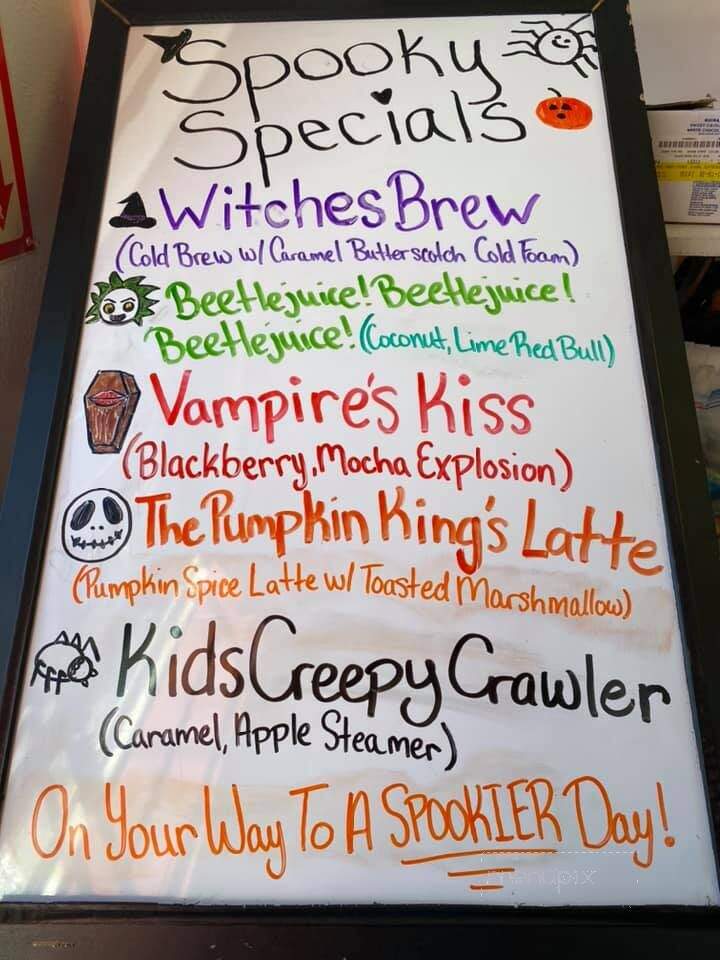 Spooky
Specials
Witches Brew
(Cold Brew w/ Caramel Butterscotch Cold Foam)
Beetlejuice! Beetlejuice!
Beetlejuice! (Coconut, Lime Red Bull)
Vampire's Kiss
(Blackberry, Mocha Explosion)
The Pumpkin King's Latte
(Pumpkin Spice Latte w/ Toasted Marshmallow)
Kids Creepy Crawler
(Caramel, Apple Steamer)
On Your Way To A SPOOKIER Day!
menupix